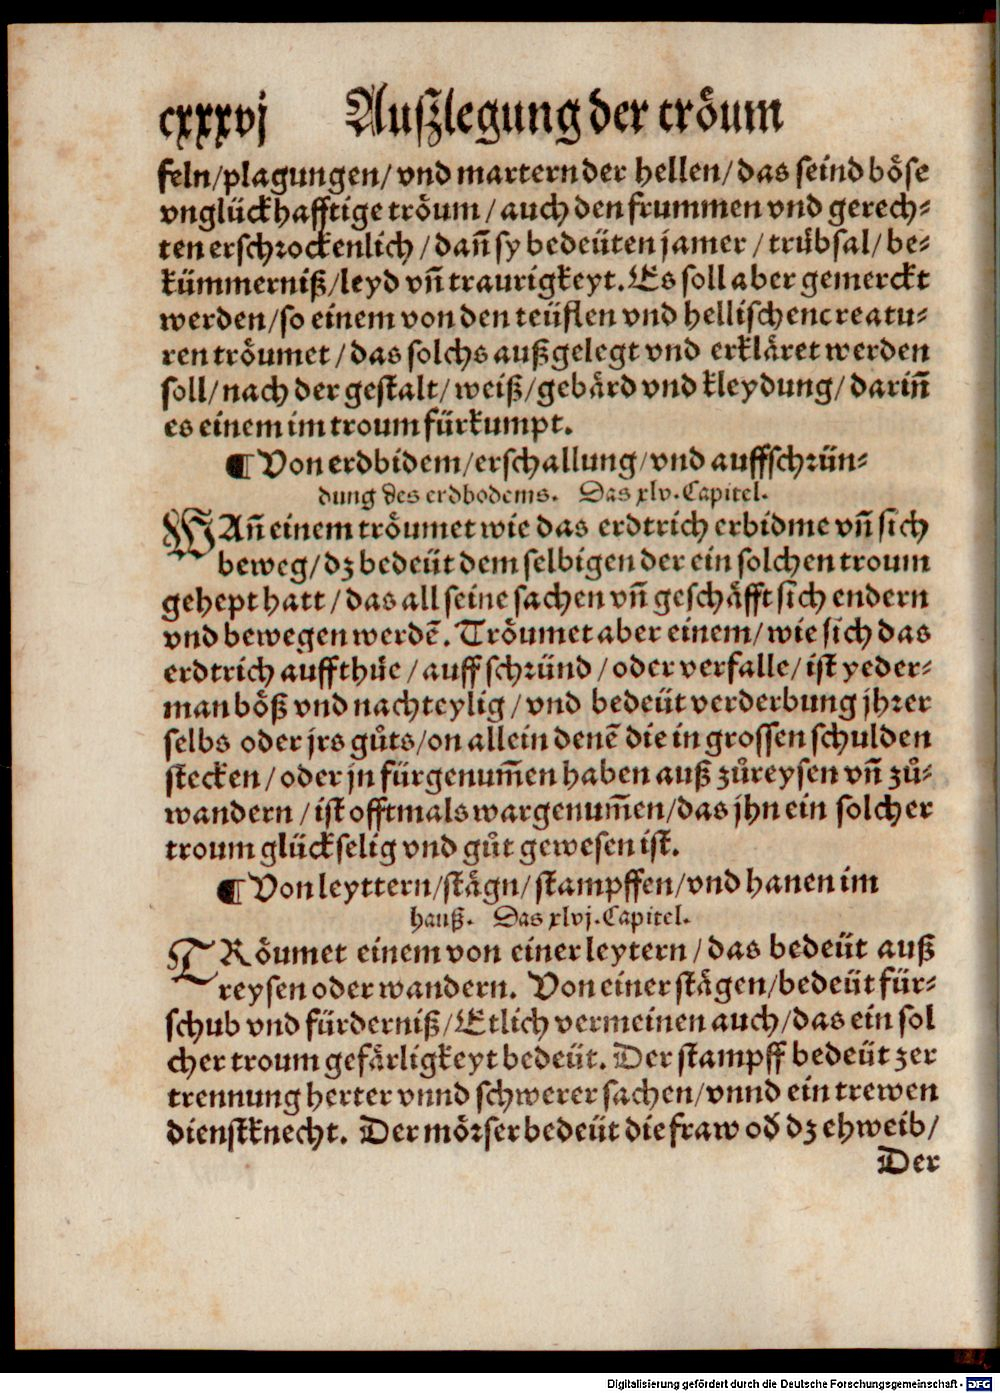 cxxxvj Auſzlegung der tröum
feln/plagungen/vnd martern der hellen/das ſeind böſe
vnglückhafftige tröum/auch den frummen vnd gerech⸗
ten erſchrockenlich/dañ ſy bedeüten jamer/trübſal/be⸗
kümmerniß/leyd vñ traurigkeyt. Es ſoll aber gemerckt
werden/ſo einem von den teüflen vnd helliſchen creatu⸗
ren tröumet/das ſolchs außgelegt vnd erkläret werden
ſoll/nach der geſtalt/weiß/gebärd vnd kleydung/dariñ
es einem im troum fürkumpt.
¶ Von erdbidem/erſchallung/vnd auffſchrün⸗
dung des erdbodems. Das xlv. Capitel.
WAñ einem tröumet wie das erdtrich erbidme vñ ſich
beweg/dz bedeüt dem ſelbigen der ein ſolchen troum
gehept hatt/das all ſeine ſachen vñ geſchäfft ſich endern
vnd bewegen werdẽ. Tröumet aber einem/wie ſich das
erdtrich auffthüe/auff ſchründ/oder verfalle/iſt yeder⸗
man böß vnd nachteylig/vnd bedeüt verderbung jhrer
ſelbs oder jrs gůts/on allein denẽ die in groſſen ſchulden
ſtecken/oder jn fürgenum̃en haben auß zůreyſen vñ zů⸗
wandern/iſt offtmals wargenum̃en/das jhn ein ſolcher
troum glückſelig vnd gůt geweſen iſt.
¶ Von leyttern/ſtägn/ſtampffen/vnd hanen im
hauß. Das xlvj. Capitel.
TRöumet einem von einer leytern/das bedeüt auß
reyſen oder wandern. Von einer ſtägen/bedeüt für⸗
ſchub vnd fürderniß/Etlich vermeinen auch/das ein ſol
cher troum gefärligkeyt bedeüt. Der ſtampff bedeüt zer
trennung herter vnnd ſchwerer ſachen/vnnd ein trewen
dienſtknecht. Der mörſer bedeüt die fraw oď dz ehweib/
Der
Digitalisierung gefördert durch die Deutsche Forschungsgemeinschaft - DFG